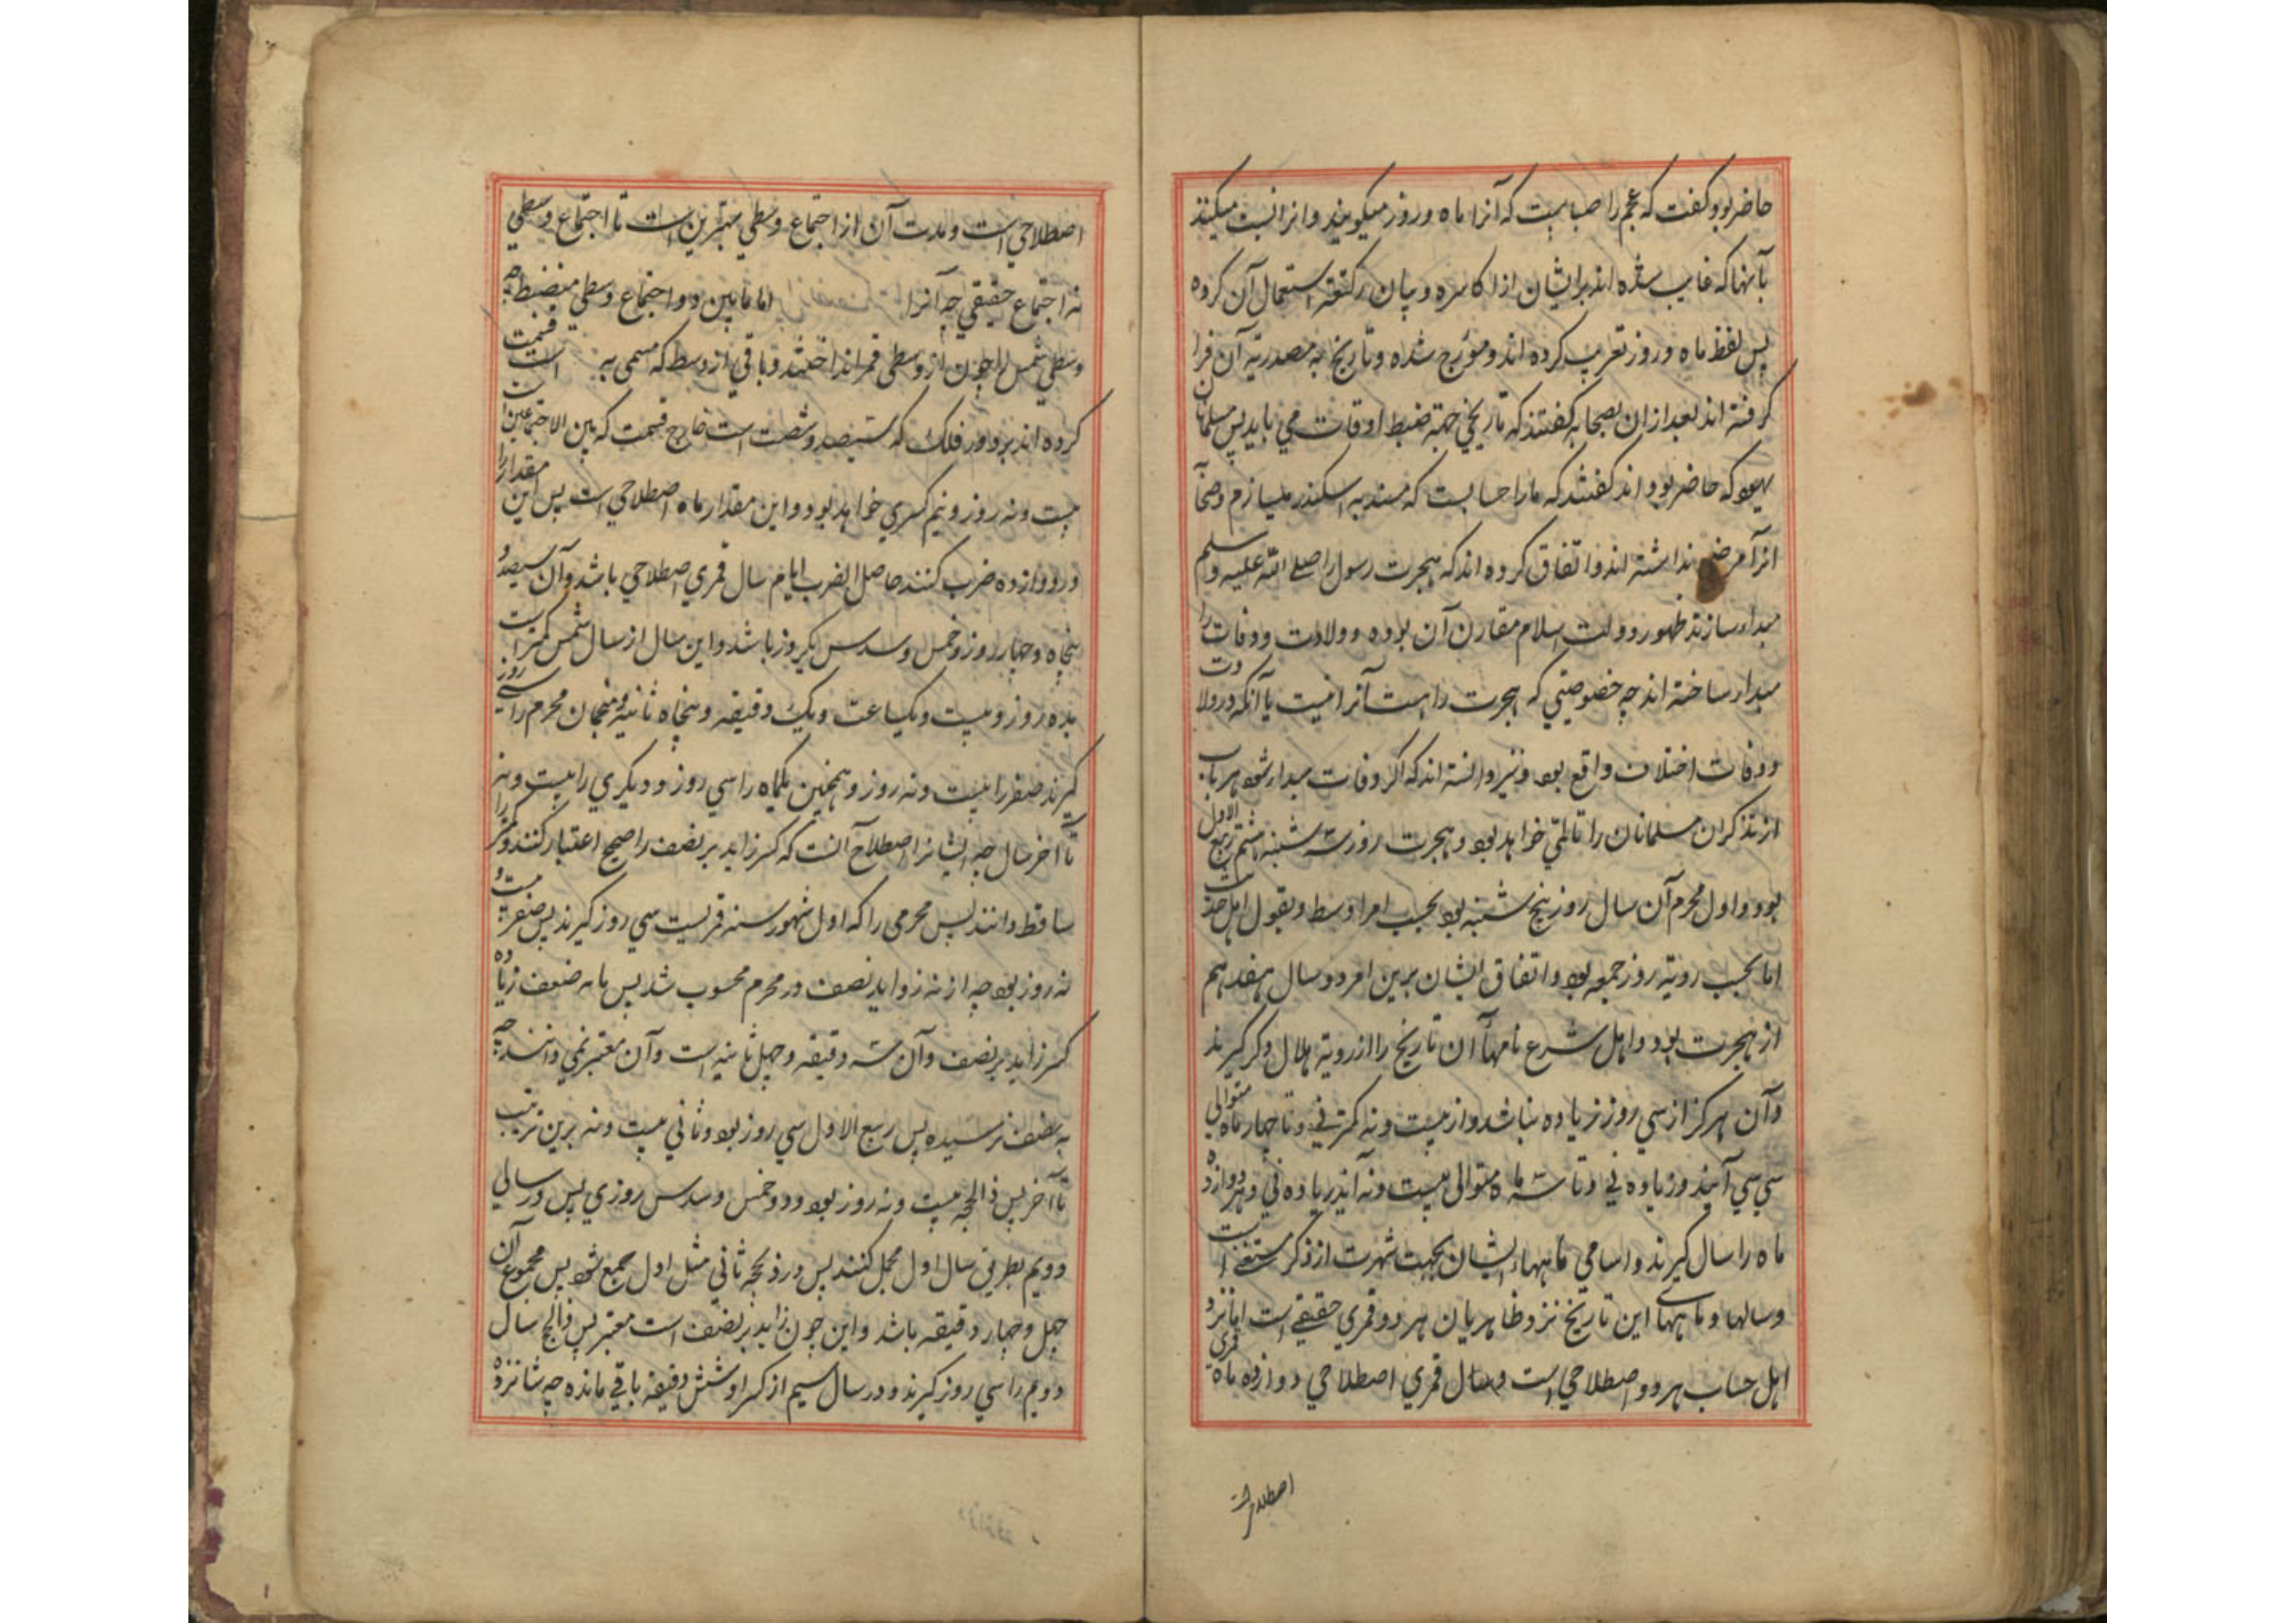 حاضر بود گفت که عجم را حسابیست که آنرا ماه و روز میگویند و انرا نسبت میکنند
بآنها که غایب شده اند بر ایشان از اکاسره و بیان کیفیة استعمال آن کرده
پس لفظ ماه و روز تعریب کرده اند و مورخ شده و تاریخ به مصدریة آن فرا
گرفته اند بعد از ان بصحابه گفتند که تاریخی جهة ضبط اوقات می باید پس مسلمانان
یهود که حاضر بوده اند گفتند که ما را حسابیست که مسند به اسکندر میسازم و صحابه
انرا مرضی نداشته اند و اتفاق کرده اند که هجرت رسول را صلی الله علیه و سلم
مبداء سازند ظهور دولت اسلام مقارن آن بوده و ولادت و وفات را
مبداء ساخته اند چه خصوصیتی که هجرت را هست آنرا نیست یا آنکه در ولادت
و وفات اختلاف واقع بود و نیز دانسته اند که اگر وفات مبداء شود هر باب
از تذکر ان مسلمانان را تالمی خواهد بود و هجرت روز سه شنبه هشتم ربیع الاول
بود و اول محرم آن سال روز پنج شنبه بود بحسب امر اوسط و بقول اهل حدیث
اما بحسب رویة روز جمعه بود و اتفاق ایشان برین امر در سال هفدهم
از هجرت بود و اهل شرع ماههاء آن تاریخ را از رویة هلال و کر گیرند
و آن هرگز از سی روز زیاده نباشد و از بیست و نه کمتر نی و تا چهار ماه متوالی
سی سی آیند و زیاده نی و تا سه ماه متوالی بیست و نه آیند زیاده نی و هر دوازده
ماه را سال گیرند و اسامی ماههاء ایشان بجهت شهرت از ذکر مستغنی است
و سالها و ماههای این تاریخ نزد ظاهریان هر دو قمری حقیقی است اما نزد
اهل حساب هر دو اصطلاحی است و سال قمری اصطلاحی دوازده ماه قمری
اصطلاحیست
اصطلاحی است و مدت آن از اجتماع وسطی نیرین است تا اجتماع وسطی
نه اجتماع حقیقی چه آنرا اما مابین دو اجتماع وسطی منضبط چه
وسطی شمس را چون از وسطی قمر انداختند و باقی از وسط که مسمی به است قسمت
کرده اند بر دور فلک که سیصد و شصت است خارج قسمت که بین الاجتماعین است
بیست و نه روز و نیم کسری خواهد بود و این مقدار ماه اصطلاحی است پس این مقدار را
در دوازده ضرب کنند حاصل الضرب ایام سال قمری اصطلاحی باشد و آن سیصد و
پنجاه و چهار روز و خمس و سدس یکروز باشد و این سال از سال شمس کمتر است
بده روز و بیست و یکساعت و یک دقیقه و پنجاه ثانیه و منجمان محرم را سی روز
گیرند صفر را بیست و نه روز و همچنین یکماه را سی روز و دیگری را بیست و نه
تا آخر سال چه ایشانرا اصطلاح آنست که کسر زاید بر نصف را صحیح اعتبار کنند و کمتر را
ساقط دانند پس محرمی را که اول شهور سنه قمریست سی روز گیرند پس صفر بیست و
نه روز بود چه از نه زواید نصف در محرم محسوب شد پس ما به ضعف زیاده
کسر زاید بر نصف و آن سه دقیقه و چهل ثانیه است و آن معتبر نمی دانند چه
به نصف نرسیده پس ربیع الاول سی روز بود و ثانی بیست و نه برین ترتیب
تا آخر پس ذالحجه بیست و نه روز بود و خمس و سدس روزی پس در سالی
دویم بطریق سال اول محل کنند پس در ذیحجه ثانی مثل اول جمع شود پس مجموع آن
چهل و چهار دقیقه باشد و این چون زاید بر نصف است معتبر پس ذالحج سال
دویم را سی روز گیرند و در سال سیم از کسر او شش دقیقه باقی مانده چه شانزده